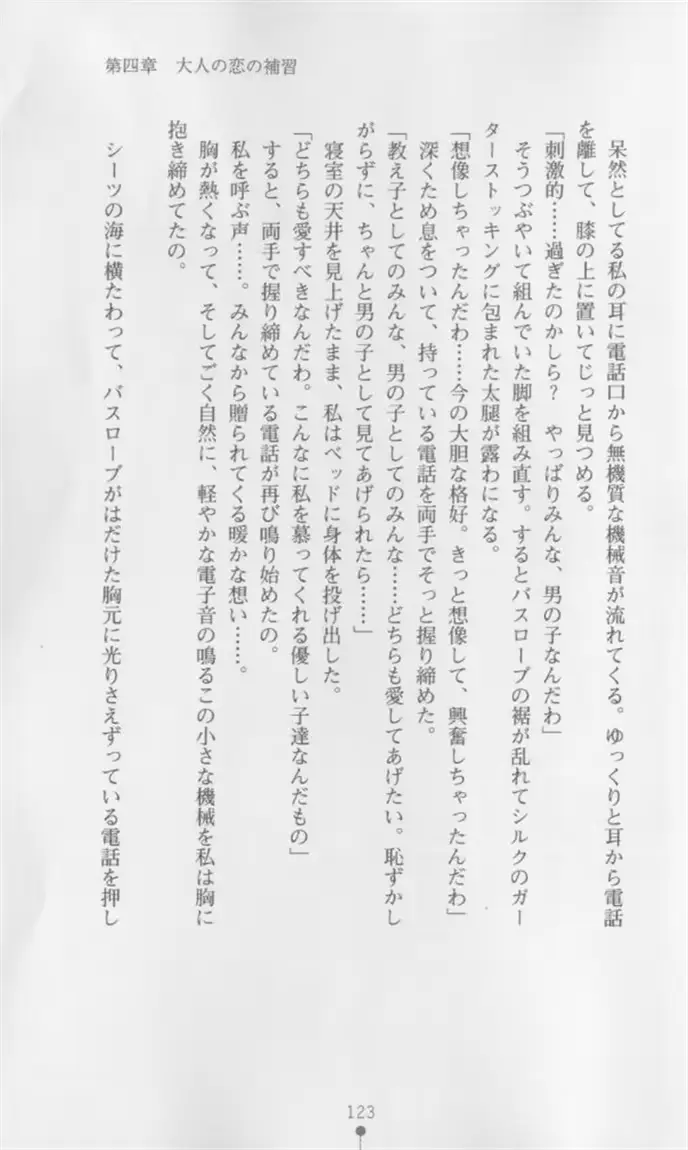 第四章　大人の恋の補習
呆然としてる私の耳に電話口から無機質な機械音が流れてくる。ゆっくりと耳から電話
を離して、膝の上に置いてじっと見つめる。
「刺激的……過ぎたのかしら？　やっぱりみんな、男の子なんだわ」
そうつぶやいて組んでいた脚を組み直す。するとバスローブの裾が乱れてシルクのガー
ターストッキングに包まれた太腿が露わになる。
「想像しちゃったんだわ……今の大胆な格好。きっと想像して、興奮しちゃったんだわ」
深くため息をついて、持っている電話を両手でそっと握り締めた。
「教え子としてのみんな、男の子としてのみんな……どちらも愛してあげたい。恥ずかし
がらずに、ちゃんと男の子として見てあげられたら……」
寝室の天井を見上げたまま、私はベッドに身体を投げ出した。
「どちらも愛すべきなんだわ。こんなに私を慕ってくれる優しい子達なんだもの」
すると、両手で握り締めている電話が再び鳴り始めたの。
私を呼ぶ声……。みんなから贈られてくる暖かな想い……。
胸が熱くなって、そしてごく自然に、軽やかな電子音の鳴るこの小さな機械を私は胸に
抱き締めてたの。
シーツの海に横たわって、バスローブがはだけた胸元に光りさえずっている電話を押し
123